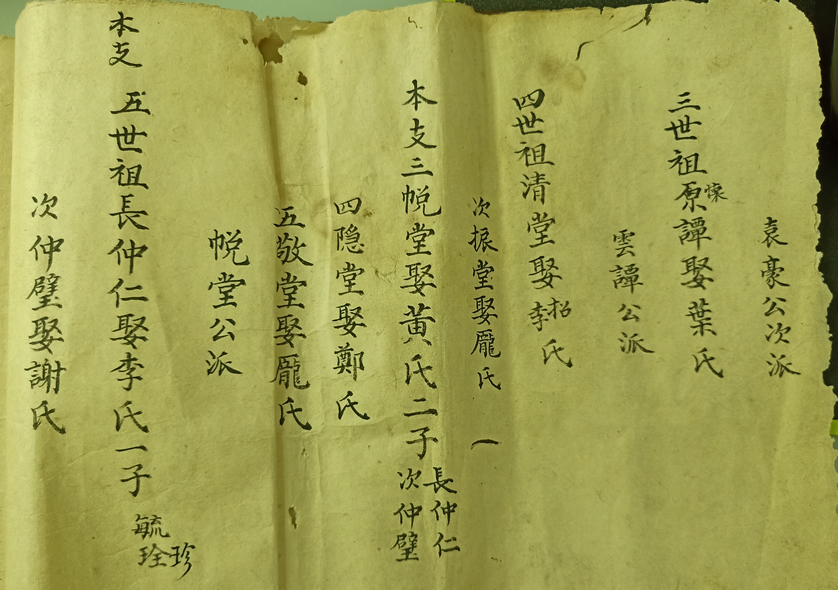 袁豪公次派
三世祖原懷譚娶葉氏
雲譚公派
四世祖清堂娶招李氏
次振堂娶龎氏 一
本支三帨堂娶黃氏二子長仲仁次仲璧
四隐堂娶鄭氏
五敬堂娶龎氏
帨堂公派
本支 五世祖長仲仁娶李氏一子毓珍琻
次仲璧娶謝氏